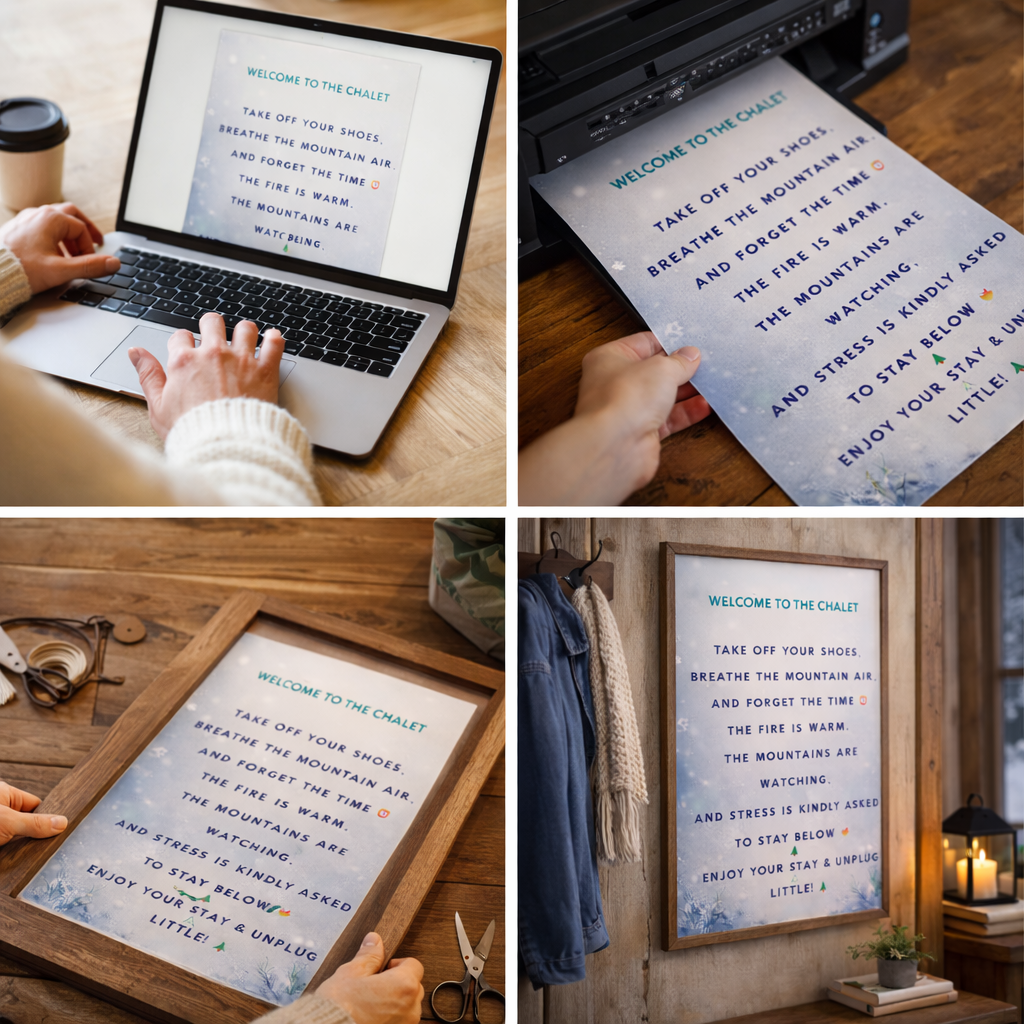 WELCOME TO THE CHALET
TAKE OFF YOUR SHOES,
BREATHE THE MOUNTAIN AIR.
AND FORGET THE TIME
THE FIRE IS WARM.
THE MOUNTAINS ARE
WELCOME TO THE CHALET
TAKE OFF YOUR SHOES,
BREATHE THE MOUNTAIN AIR.
AND FORGET THE TIME
THE FIRE IS WARM.
THE MOUNTAINS ARE
WATCHING.
AND STRESS IS KINDLY ASKED
TO STAY BELOW
ENJOY YOUR STAY & UN
LITTLE!
WELCOME TO THE CHALET
TAKE OFF YOUR SHOES,
BREATHE THE MOUNTAIN AIR.
AND FORGET THE TIME
THE FIRE IS WARM.
THE MOUNTAINS ARE
WATCHING.
AND STRESS IS KINDLY ASKED
TO STAY BELOW
ENJOY YOUR STAY & UNPLUG
LITTLE!
WELCOME TO THE CHALET
TAKE OFF YOUR SHOES,
BREATHE THE MOUNTAIN AIR.
AND FORGET THE TIME
THE FIRE IS WARM.
THE MOUNTAINS ARE
WATCHING.
AND STRESS IS KINDLY ASKED
TO STAY BELOW
ENJOY YOUR STAY & UNPLUG
LITTLE!